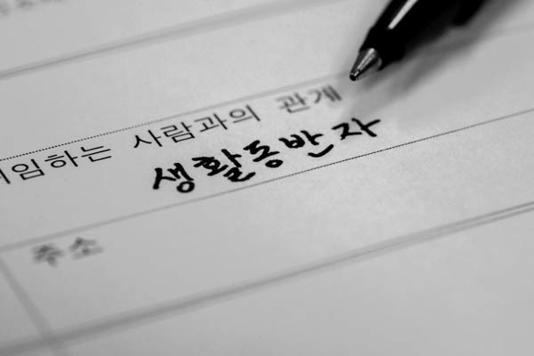 임하는 사람과의 관계
생활동반자
주소